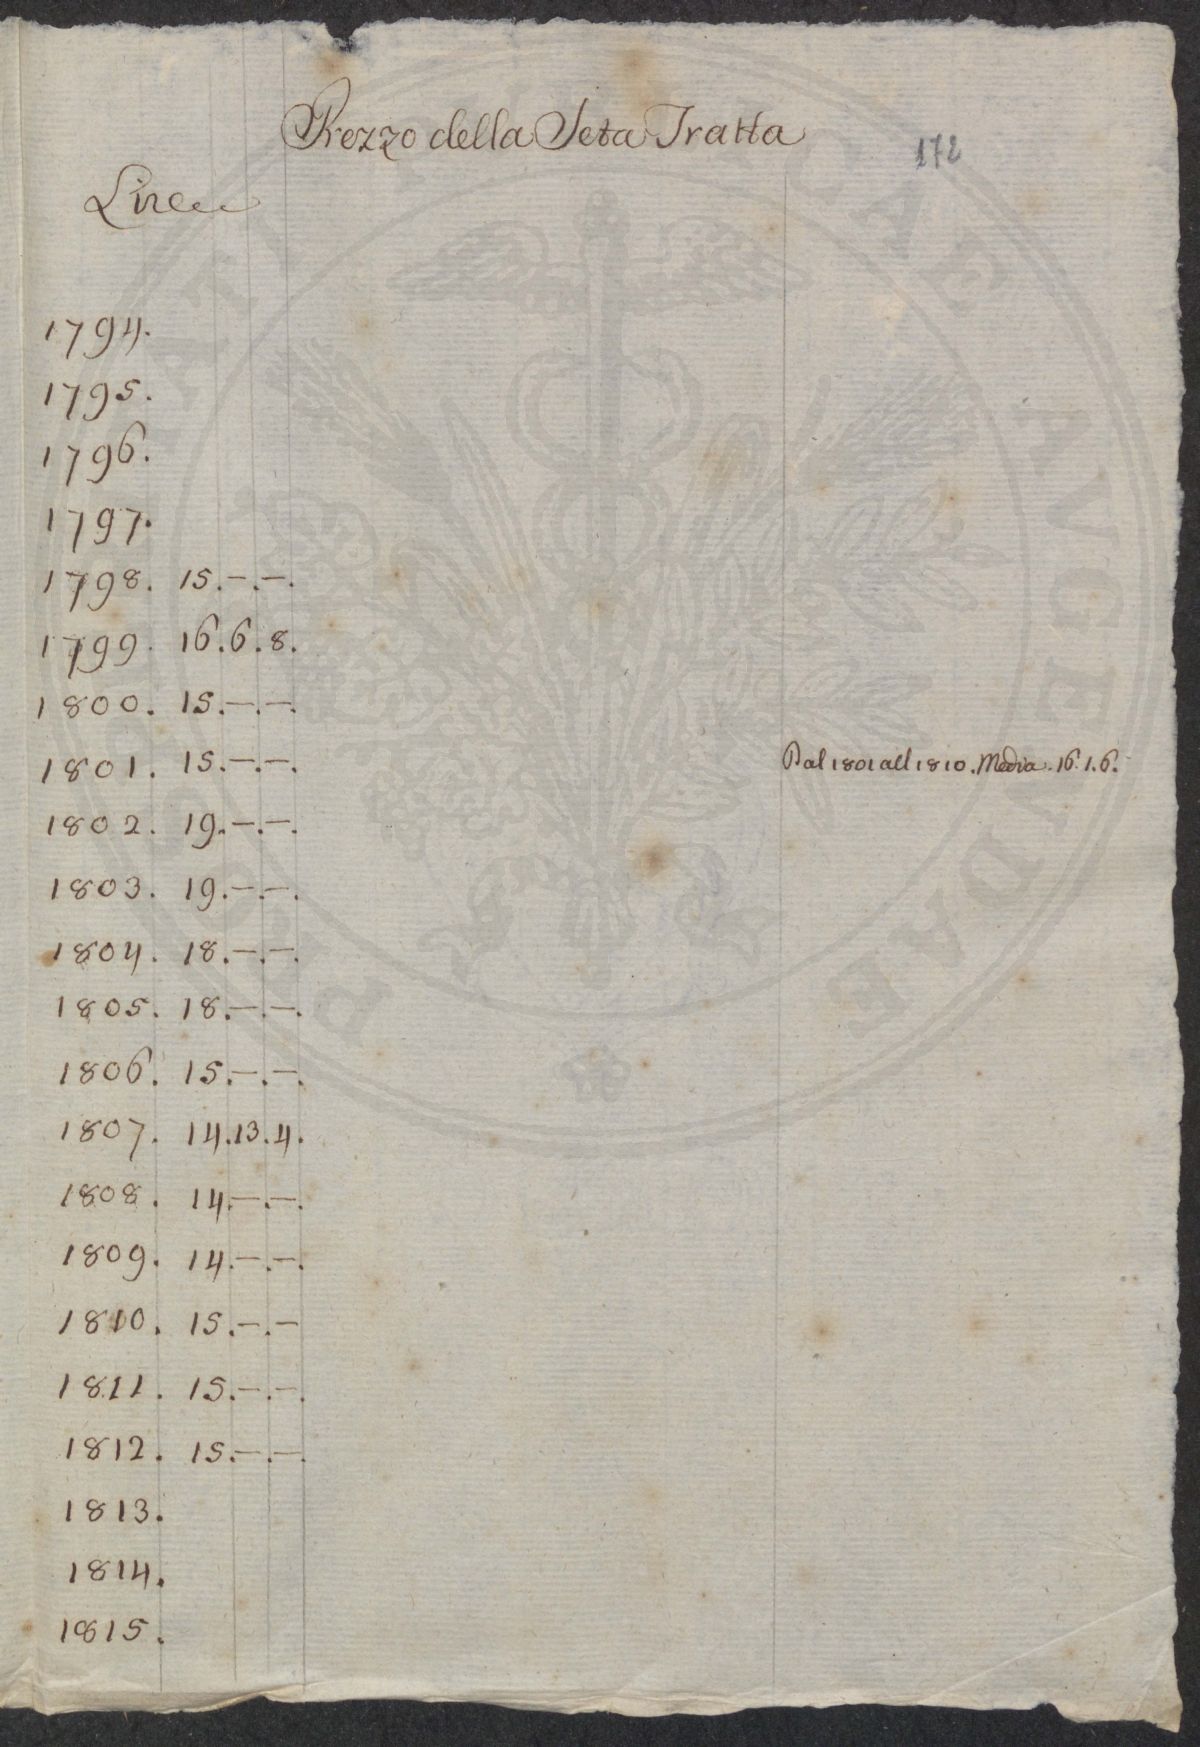 Prezzo della Seta Tratta
172
Lire
1794.
1795.
1796.
1797.
1798. 15.—.—.
1799. 16.6.8.
1800. 15.—.—.
1801. 15.—.—. Dal 1801 all 1810. Media. 16.1.6.
1802. 19.—.—.
1803. 19.—.—.
1804. 18.—.—.
1805. 18.—.—.
1806. 15.—.—.
1807. 14.13.4.
1808. 14.—.—.
1809. 14.—.—.
1810. 15.—.—
1811. 15.—.—.
1812. 15.—.—.
1813.
1814.
1815.